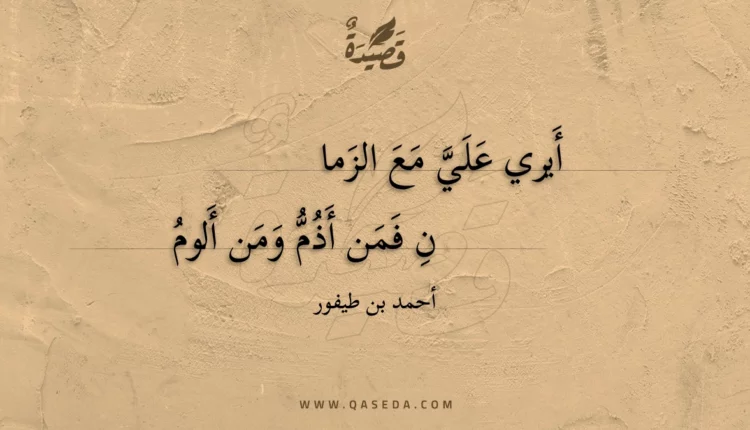 قَصِيدَةٌ
أَيري عَلَيَّ مَعَ الزَما
نِ فَمَن أَذُمُّ وَمَن أَلومُ
أحمد بن طيفور
WWW.QASEDA.COM